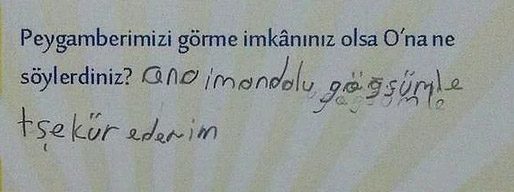 Peygamberimizi görme imkânınız olsa O'na ne
söylerdiniz? ona imandolu göğsümle
tşekür ederim